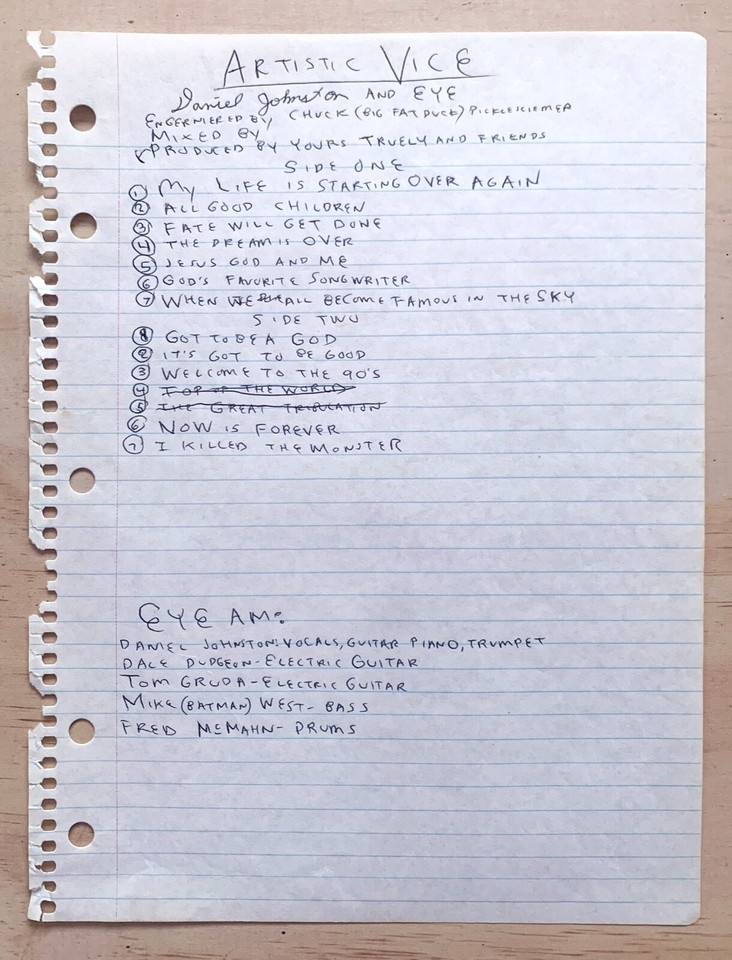 ARTISTIC VICE
Daniel Johnston AND EYE
ENGERNIERED BY CHUCK (BIG FAT DUCK)
MIXED BY
PRODUCED BY YOURS TRUELY AND FRIENDS
SIDE ONE
① MY LIFE IS STARTING OVER AGAIN
② ALL GOOD CHILDREN
③ FATE WILL GET DONE
④ THE DREAM IS OVER
⑤ JESUS GOD AND ME
⑥ GOD'S FAVORITE SONGWRITER
⑦ WHEN WE ALL BECOME FAMOUS IN THE SKY
SIDE TWO
① GOT TO BE A GOD
② IT'S GOT TO BE GOOD
③ WELCOME TO THE 90'S
④ TOP OF THE WORLD
⑤ THE GREAT TRIBULATION
⑥ NOW IS FOREVER
⑦ I KILLED THE MONSTER
EYE AM:
DANIEL JOHNSTON: VOCALS, GUITAR PIANO, TRUMPET
DALE DUDGEON - ELECTRIC GUITAR
TOM GRUDA - ELECTRIC GUITAR
MIKE (BATMAN) WEST - BASS
FRED McMAHN - DRUMS